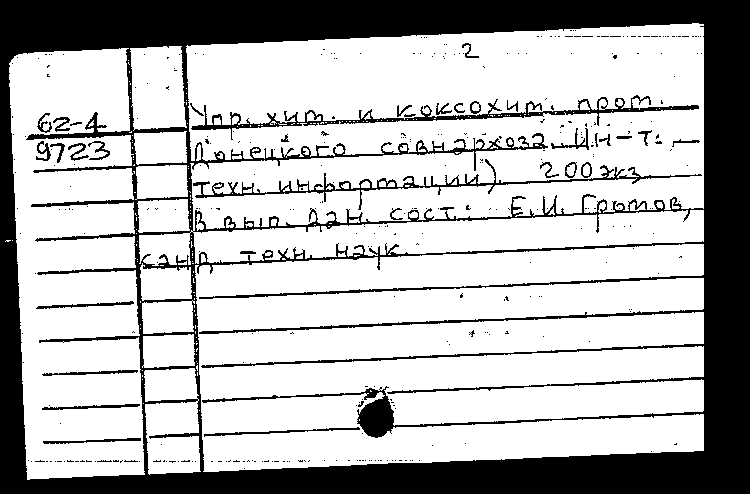 2
62-4
9723
Упр. хим. и коксохим. пром.
Донецкого совнархоза. Ин-т
техн. информации) 200 экз.
В вып. дан. сост.: Е.И. Громов,
канд. техн. наук.